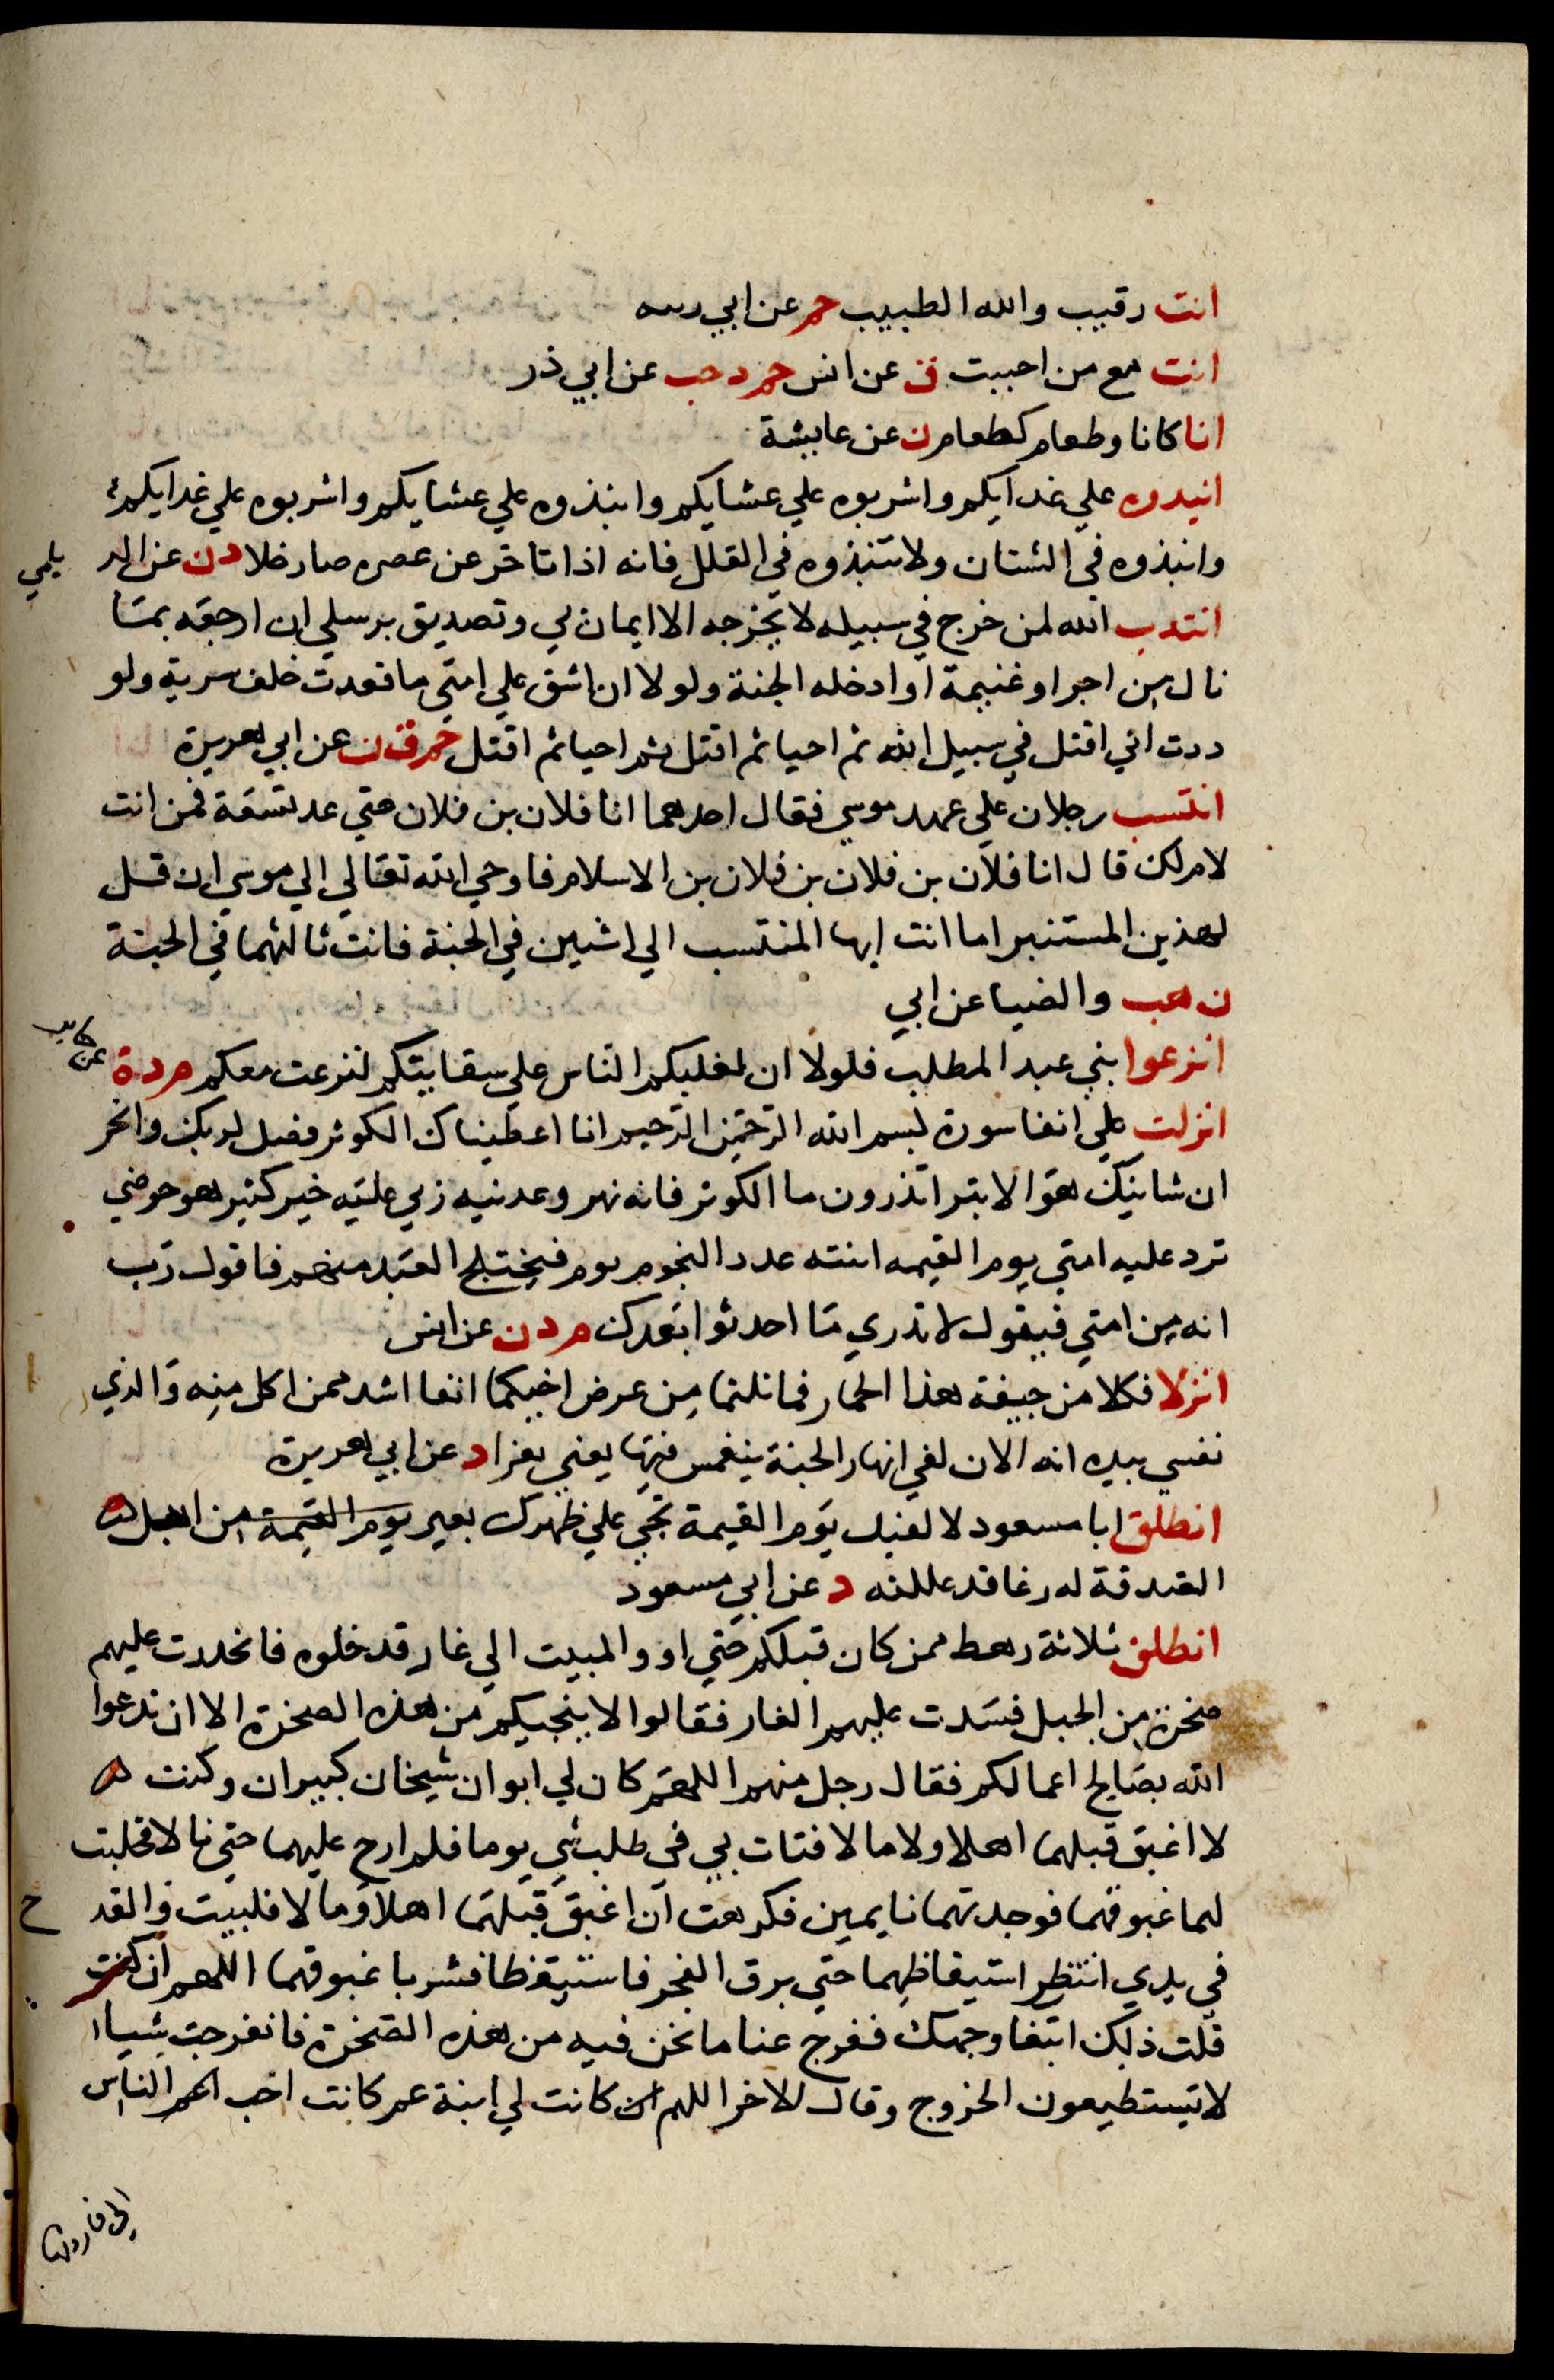 انت رقيب والله الطبيب حم عن ابي رمه
انت مع من احببت ق عن انس حم د حب عن ابي ذر
انا كانا وطعام كطعام ن عن عايشة
انبدوه علي غدايكم واشربوه علي عشايكم وانبذوه علي عشايكم واشربوه علي غدايكم
وانبذوه في الشنان ولا تنبذوه في القلل فانه اذا تاخر عن عصره صار خلا د ن عن الد يلمي
انتدب الله لمن خرج في سبيله لا يخرجه الا ايمان بي وتصديق برسلي ان ارجعه بما
نال من اجر او غنيمة او ادخله الجنة ولولا ان اشق علي امتي ما قعدت خلف سرية ولو
ددت اني اقتل في سبيل الله ثم احيا ثم اقتل ثم احيا ثم اقتل حم ق ن عن ابي هريرة
انتسب رجلان علي عهد موسي فقال احدهما انا فلان بن فلان حتي عد تسعة فمن انت
لام لك قال انا فلان بن فلان بن فلان بن الاسلام فاوحي الله تعالي الي موسي ان قل
لهذين المنتسبين اما انت ايها المنتسب الي اثنين في الجنة فانت ثالثهما في الجنة
ن هب والضيا عن ابي
انزعوا بني عبد المطلب فلولا ان يغلبكم الناس علي سقايتكم لنزعت معكم م د ة عن جابر
انزلت علي انفا سورة بسم الله الرحمن الرحيم انا اعطيناك الكوثر فصل لربك وانحر
ان شانيك هو الابتر اتدرون ما الكوثر فانه نهر وعدنيه ربي عليه خير كثير هو حوضي
ترد عليه امتي يوم القيمه انيته عدد النجوم يوم فيختلج العبد منهم فاقول رب
انه من امتي فيقول لا تدري ما احدثوا بعدك م د ن عن انس
انزلا فكلا من جيفة هذا الحمار فما نلتما من عرض اخيكما انفا اشد ممن اكل منه والذي
نفسي بيده انه الان لفي انهار الجنة ينغمس فيها يعني بعزا د عن ابي هريرة
انطلق ابا مسعود لا لفينك يوم القيمة تجي علي ظهرك بعير يوم القيمة من ابل
الصدقة له رغا قد عللته د عن ابي مسعود
انطلق ثلاثة رهط ممن كان قبلكم حتي اووا المبيت الي غار قد خلوه فانحدرت عليهم
صخرة من الجبل فسدت عليهم الغار فقالوا لا ينجيكم من هذه الصخرة الا ان تدعوا
الله بصالح اعمالكم فقال رجل منهم اللهم كان لي ابوان شيخان كبيران وكنت
لا اغبق قبلهما اهلا ولا مالا فنات بي في طلب شي يوما فلم ارح عليهما حتي ناما فحلبت
لهما غبوقهما فوجدتهما نايمين فكرهت ان اغبق قبلهما اهلا وما لا فلبيت والقد ح
في يدي انتظر استيقاظهما حتي برق الفجر فاستيقظا فشربا غبوقهما اللهم ان كنت
فعلت ذلك ابتغا وجهك ففرج عنا ما نحن فيه من هذه الصخرة فانفرجت شيا
لا يستطيعون الخروج وقال الاخر اللهم ان كانت لي ابنة عم كانت احب اعم الناس
الي فاردتها